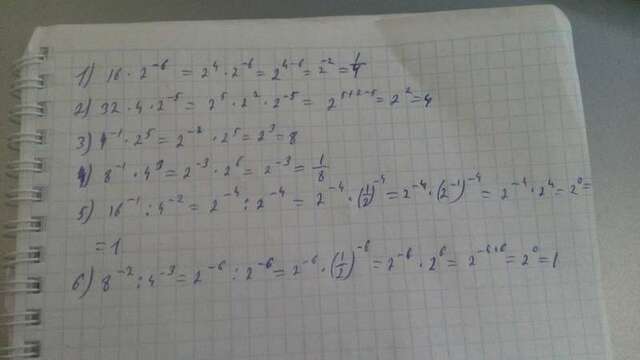 1) 16 · 2⁻⁶ = 2⁴ · 2⁻⁶ = 2⁴⁻⁶ = 2⁻² = 1/4
2) 32 · 4 · 2⁻⁵ = 2⁵ · 2² · 2⁻⁵ = 2⁵⁺²⁻⁵ = 2² = 4
3) 4⁻¹ · 2⁵ = 2⁻² · 2⁵ = 2³ = 8
4) 8⁻¹ · 4³ = 2⁻³ · 2⁶ = 2⁻³ = 1/8
5) 16⁻¹ : 4⁻² = 2⁻⁴ : 2⁻⁴ = 2⁻⁴ · (1/2)⁻⁴ = 2⁻⁴ · (2⁻¹)⁻⁴ = 2⁻⁴ · 2⁴ = 2⁰ =
= 1
6) 8⁻² : 4⁻³ = 2⁻⁶ : 2⁻⁶ = 2⁻⁶ · (1/2)⁻⁶ = 2⁻⁶ · 2⁶ = 2⁻⁶⁺⁶ = 2⁰ = 1